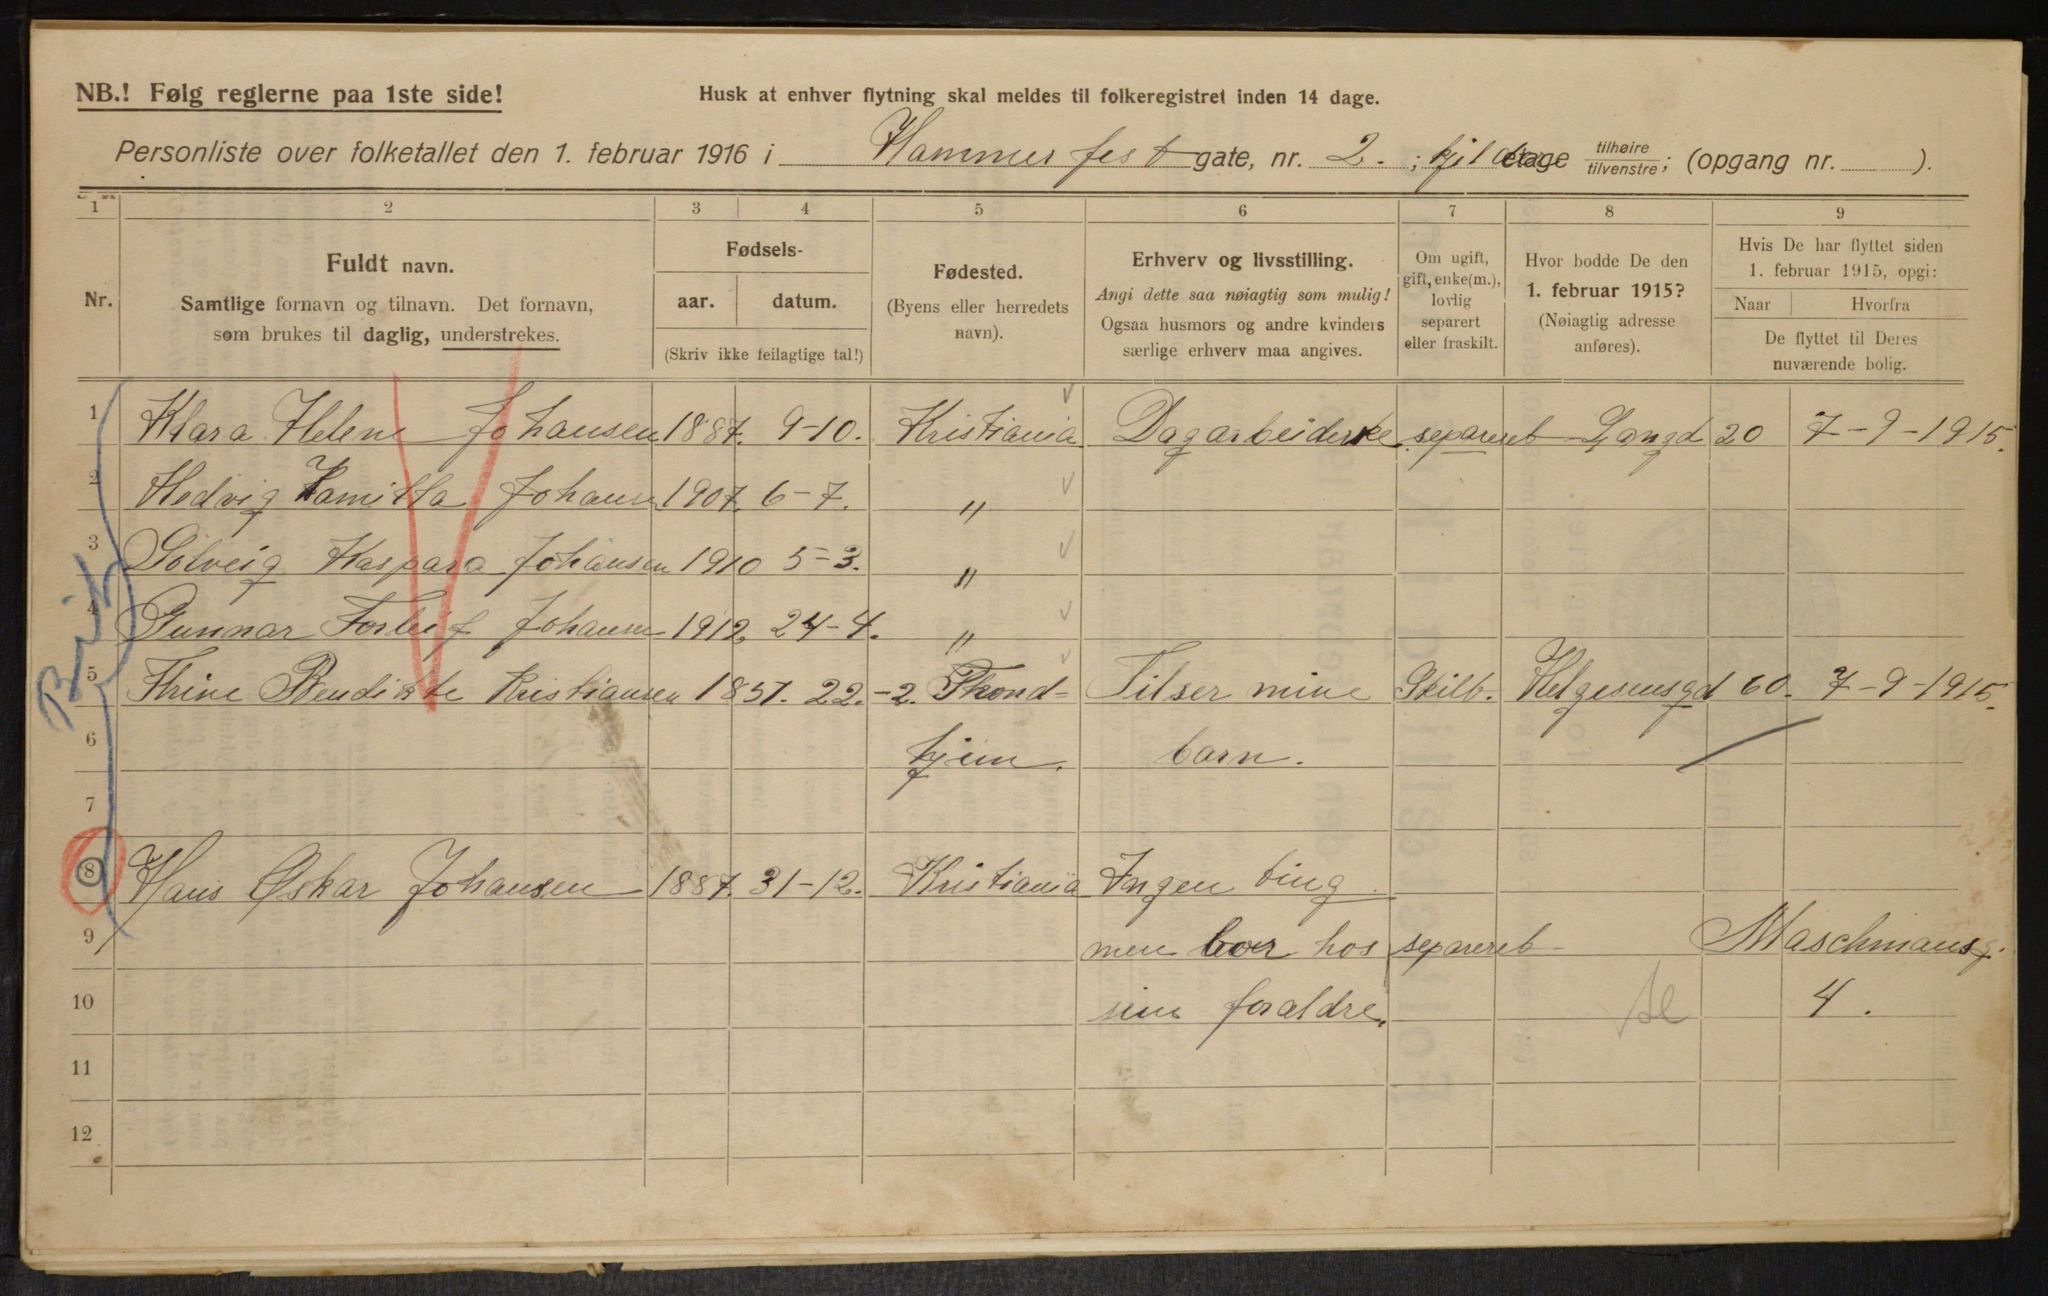 NB.! Følg reglerne paa 1ste side!
Husk at enhver flytning skal meldes til folkeregistret inden 14 dage.
Personliste over folketallet den 1. februar 1916 i Hammerfest gate, nr. 2. ; etage tilhøire tilvenstre; (opgang nr. ).
1 2 3 4 5 6 7 8 9
Nr.
Fuldt navn.
Samtlige fornavn og tilnavn. Det fornavn,
som brukes til daglig, understrekes.
Fødsels-
aar. datum.
(Skriv ikke feilagtige tal!)
Fødested.
(Byens eller herredets
navn).
Erhverv og livsstilling.
Angi dette saa nøiagtig som mulig!
Ogsaa husmors og andre kvinders
særlige erhverv maa angives.
Om ugift,
gift, enke(m.),
lovlig
separert
eller fraskilt.
Hvor bodde De den
1. februar 1915?
(Nøiagtig adresse
anføres).
Hvis De har flyttet siden
1. februar 1915, opgi:
Naar Hvorfra
De flyttet til Deres
nuværende bolig.
1 Klara Helene Johansen 1887. 9-10. Kristiania Dagarbeiderske separert Langd 20 7-9-1915.
2 Hedvig Kamilla Johansen 1907. 6-7. "
3 Solveig Kaspara Johansen 1910 5-3. "
4 Gunnar Torleif Johansen 1912. 24-4. "
5 Thrine Bendikte Kristiansen 1857. 22-2. Thond- Tilser mine Skilt. Helgesensgd 60. 7-9-1915.
6 hjem. barn.
7
8 Hans Oskar Johansen 1887. 31-12. Kristiania Ingen ting
9 men boer hos separert Maschmansg.
10 sine foraldre. 4.
11
12